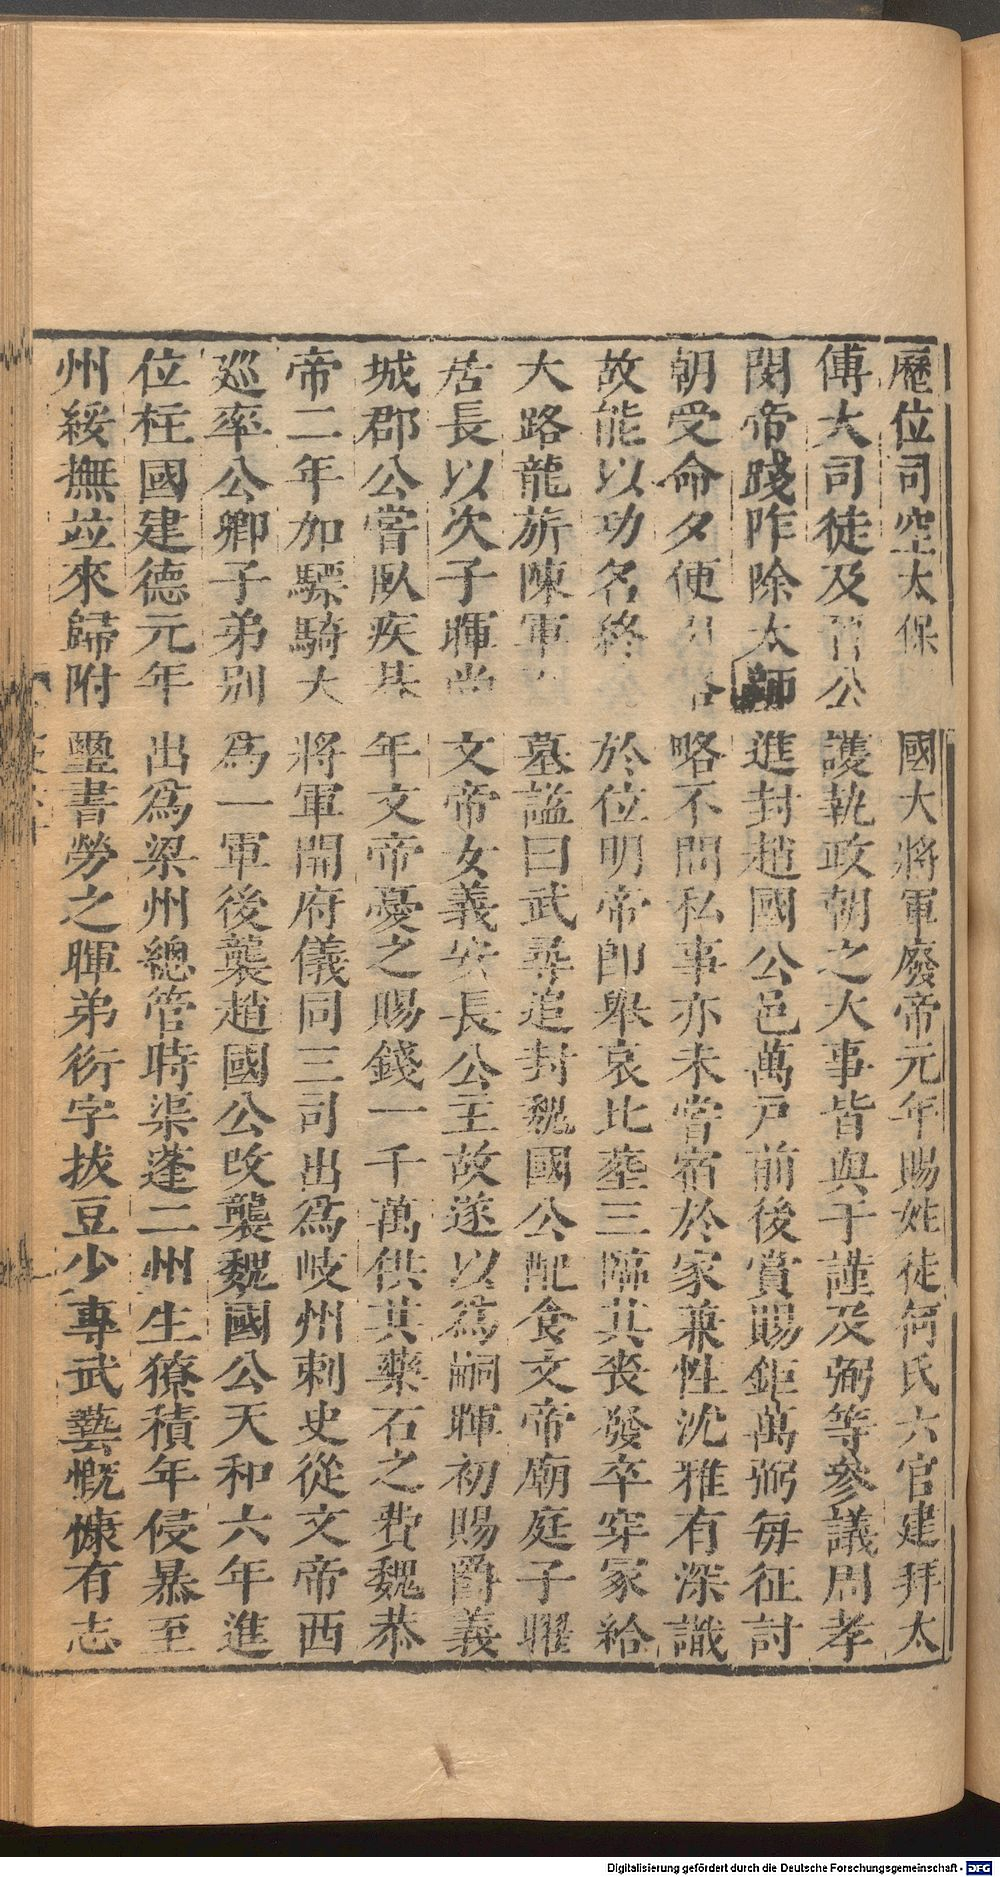 歷位司空太保 國大將軍廢帝元年賜姓徒何氏六官建拜太
傅大司徒及晉公護執政朝之大事皆與于謹及弼等參議周孝
閔帝踐阼除太師進封趙國公邑萬戶前後賞賜鉅萬弼每征討
朝受命夕便 略不問私事亦未嘗宿於家兼性沈雅有深識
故能以功名終於位明帝卽舉哀比塟三臨其喪發卒穿冢給
大路龍旂陳軍 墓諡曰武尋追封魏國公配食文帝廟庭子曜
居長以次子暉尚文帝女義安長公主故遂以爲嗣暉初賜爵義
城郡公嘗臥疾朞年文帝憂之賜錢一千萬供其藥石之費魏恭
帝二年加驃騎大將軍開府儀同三司出爲岐州刺史從文帝西
巡率公卿子弟別爲一軍後襲趙國公改襲魏國公天和六年進
位柱國建德元年出爲梁州總管時渠蓬二州生獠積年侵暴至
州綏撫竝來歸附璽書勞之暉弟衍字拔豆少專武藝慨慷有志
Digitalisierung gefördert durch die Deutsche Forschungsgemeinschaft - DFG